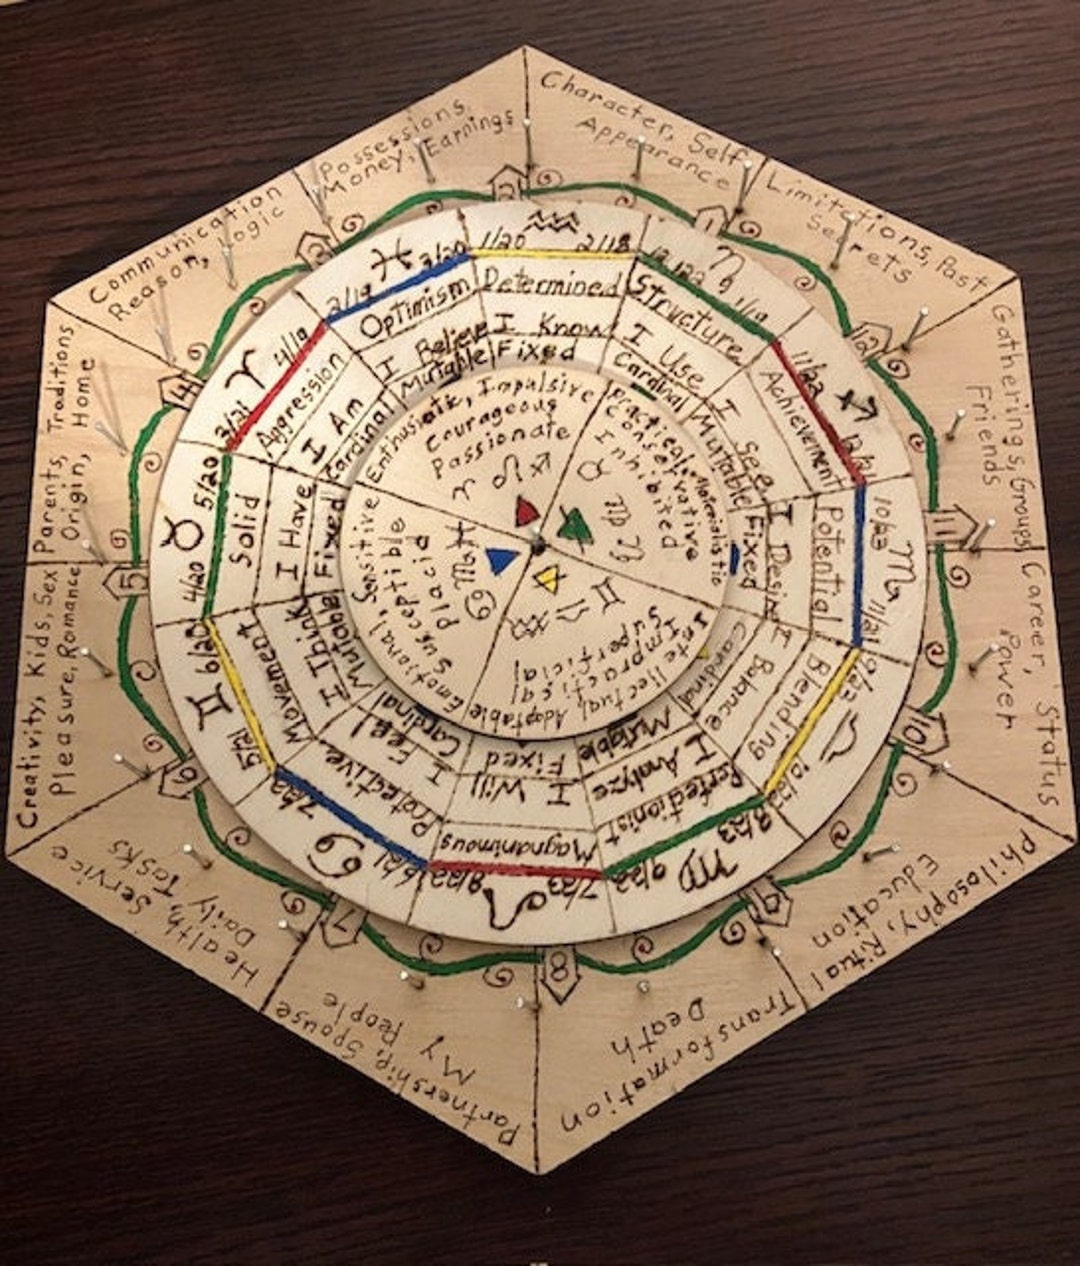 Character, Self,
Appearance
Limitations, Past
Secrets
Gatherings, Groups
Friends
Career, Status
Power
Philosophy, Ritual
Education
Transformation
Death
Partnership, Spouse
My People
Health, Service
Daily Tasks
Creativity, Kids, Sex
Pleasure, Romance
Parents, Traditions
Origin, Home
Communication
Reason, Logic
Possessions,
Money, Earnings
1
12
11
10
9
8
7
6
5
4
3
2
♒
1/20 2/18
Determined
I Know
Fixed
♑
12/22 1/19
Structure
I Use
Cardinal
♐
11/22
Achievement
I See
Mutable
♏
10/23 11/21
Potential
I Desire
Fixed
♎
9/23
Blending
I Balance
Cardinal
♍
8/23 9/22
Perfectionist
I Analyze
Mutable
♌
7/23 8/22
Magnanimous
I Will
Fixed
♋
6/21 7/22
Protective
I Feel
Cardinal
♊
5/21 6/20
Movement
I Think
Mutable
♉
4/20 5/20
Solid
I Have
Fixed
♈
3/21 4/19
Aggression
I Am
Cardinal
♓
2/19 3/20
Optimism
I Believe
Mutable
Enthusiastic, Impulsive
Courageous
Passionate
♈ ♌ ♐
Practical, Materialistic
Conservative
Inhibited
♉ ♍ ♑
Intellectual, Adaptable
Impractical
Superficial
♊ ♎ ♒
Emotional, Sensitive
Susceptible
Placid
♋ ♏ ♓